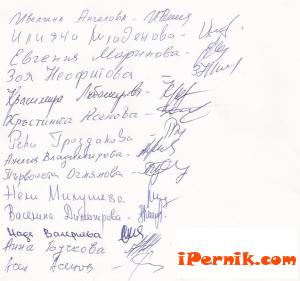 Ивелина Ангелова -
Илияна Младенова -
Евгения Маринова -
Зоя Неофитова
Красимира Любомирова -
Кръстинка Асенова -
Рени Гроздакова -
Анелия Владимирова -
Първолета Огнянова -
Нели Микушева
Валерина Димитрова -
Надя Валериева
Анна Бучкова
Асен Асенов
iPernik.com